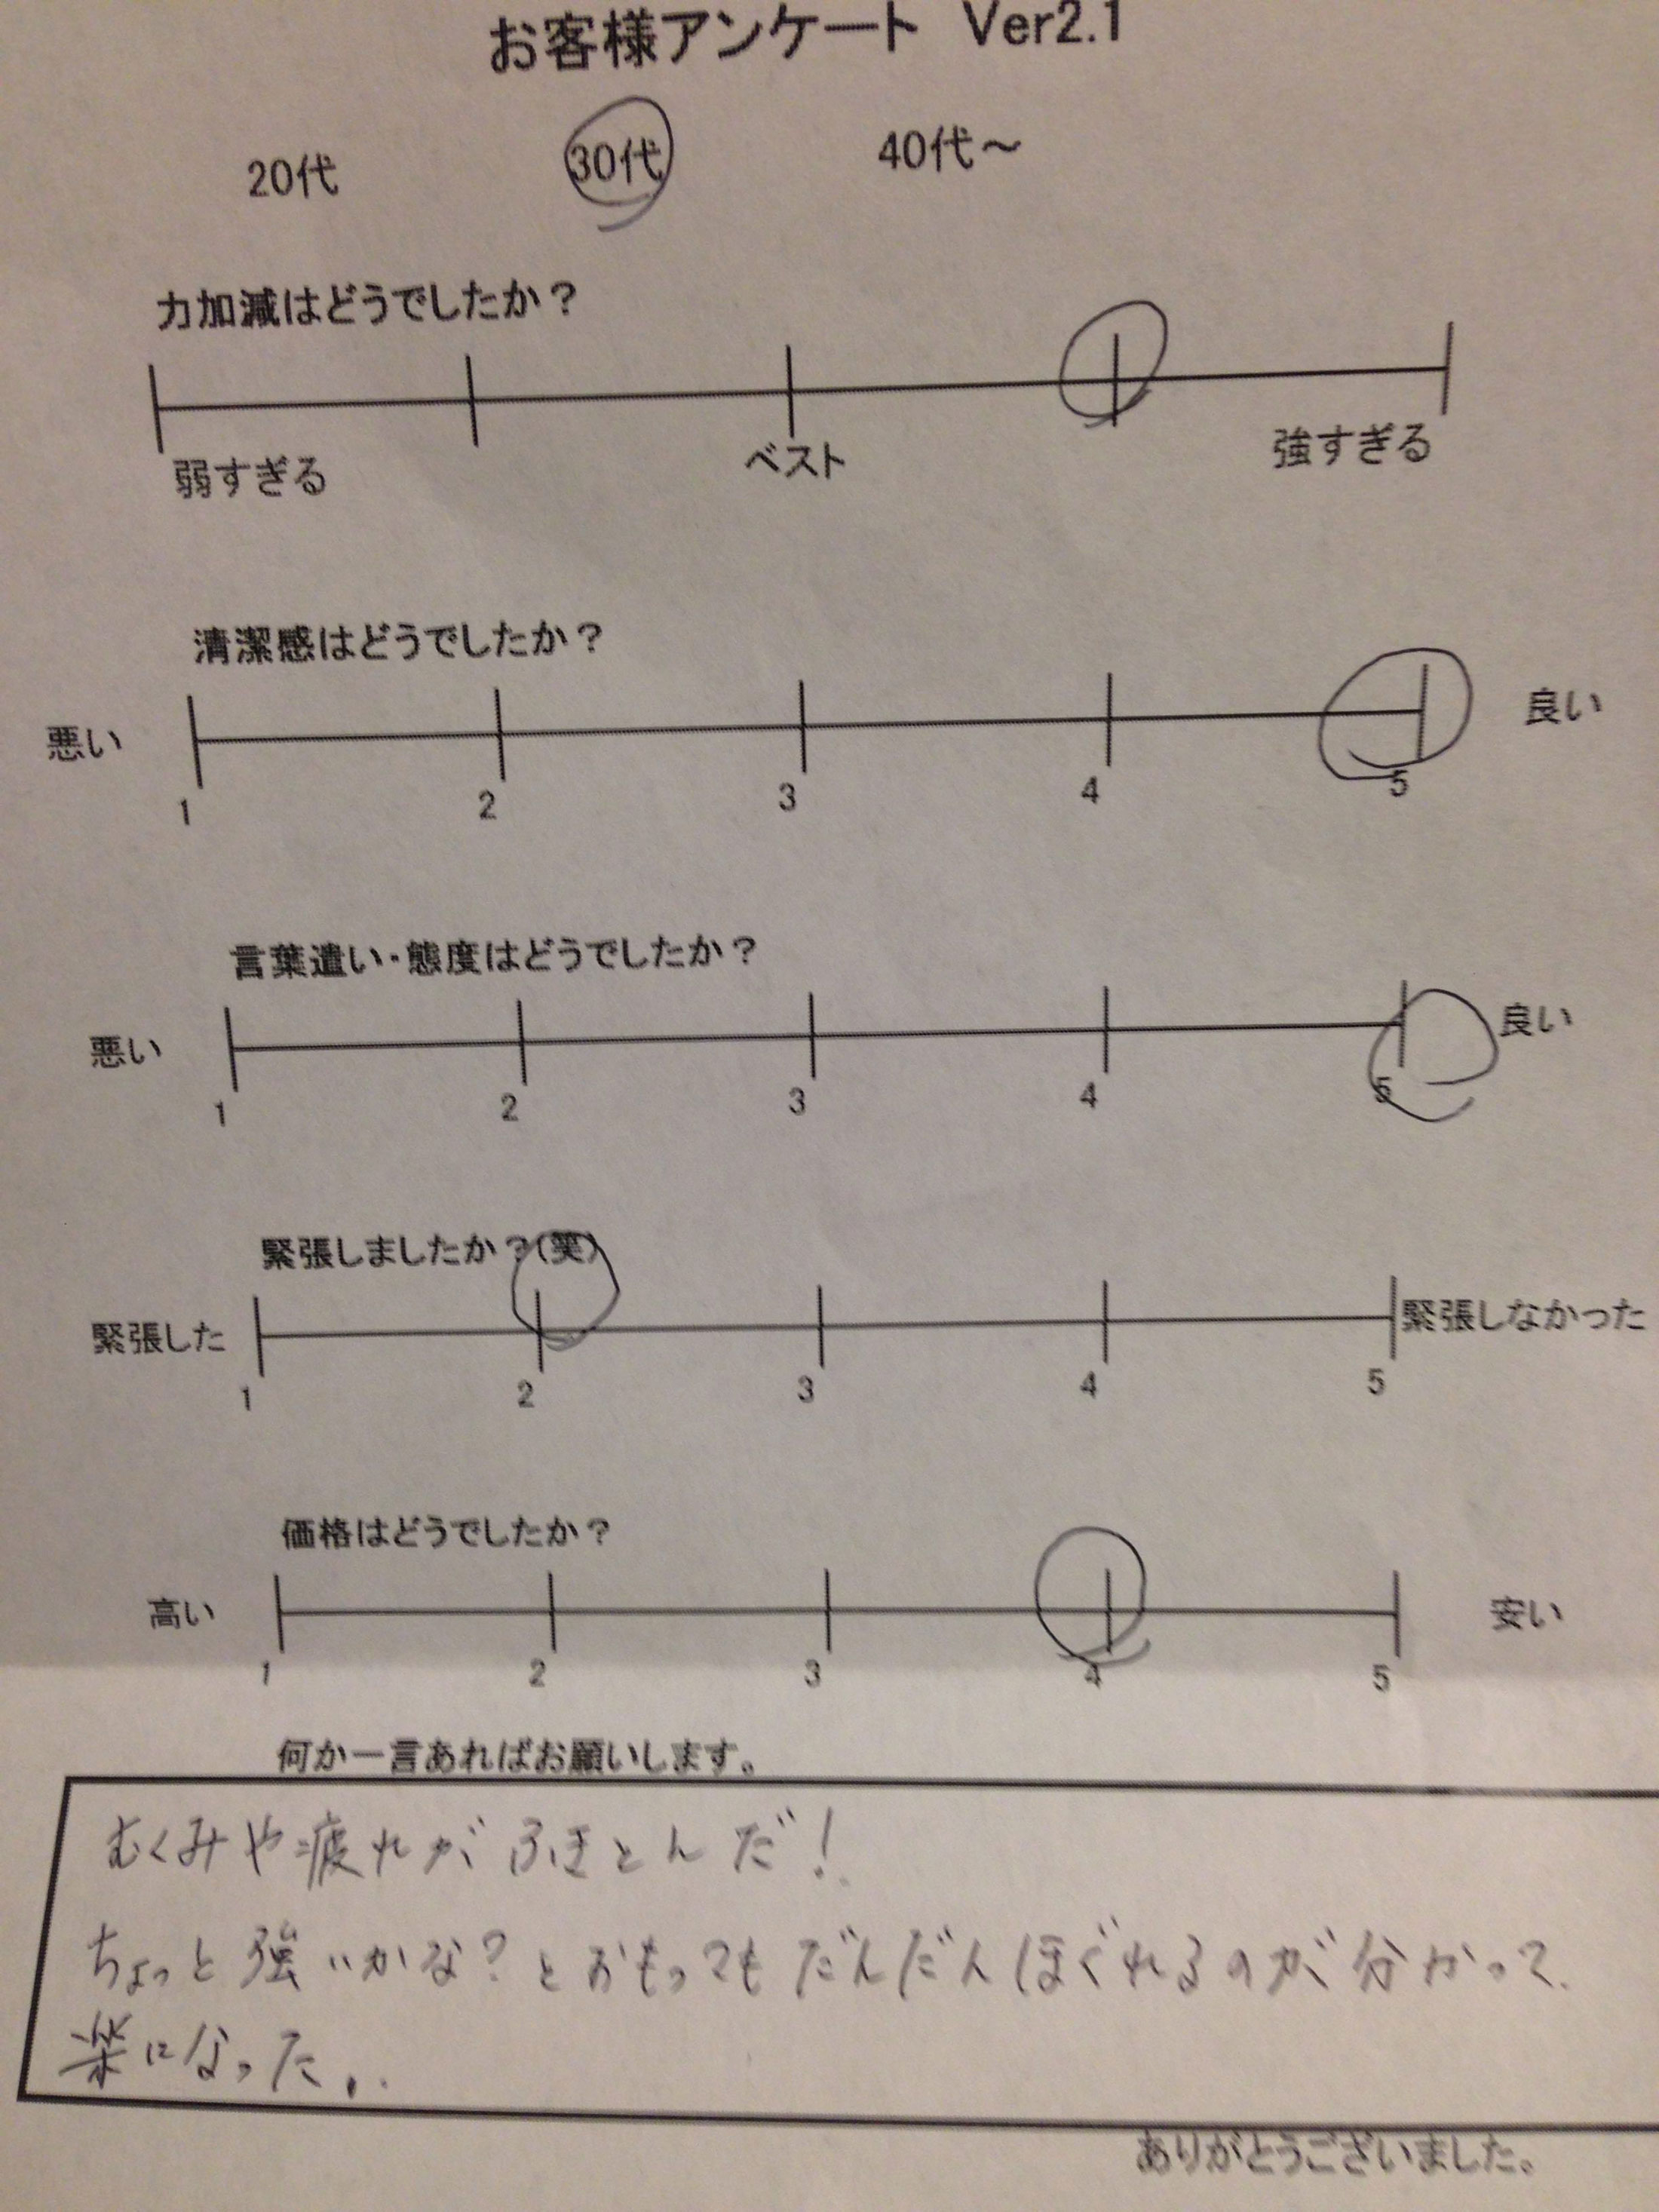 お客様アンケート Ver2.1
20代 30代 40代～
力加減はどうでしたか？
弱すぎる ベスト 強すぎる
清潔感はどうでしたか？
悪い 良い
1 2 3 4 5
言葉遣い・態度はどうでしたか？
悪い 良い
1 2 3 4 5
緊張しましたか？(笑)
緊張した 緊張しなかった
1 2 3 4 5
価格はどうでしたか？
高い 安い
1 2 3 4 5
何か一言あればお願いします。
むくみや疲れがふきとんだ！
ちょっと強いかな？とおもってもだんだんほぐれるのが分かって、
楽になった。
ありがとうございました。